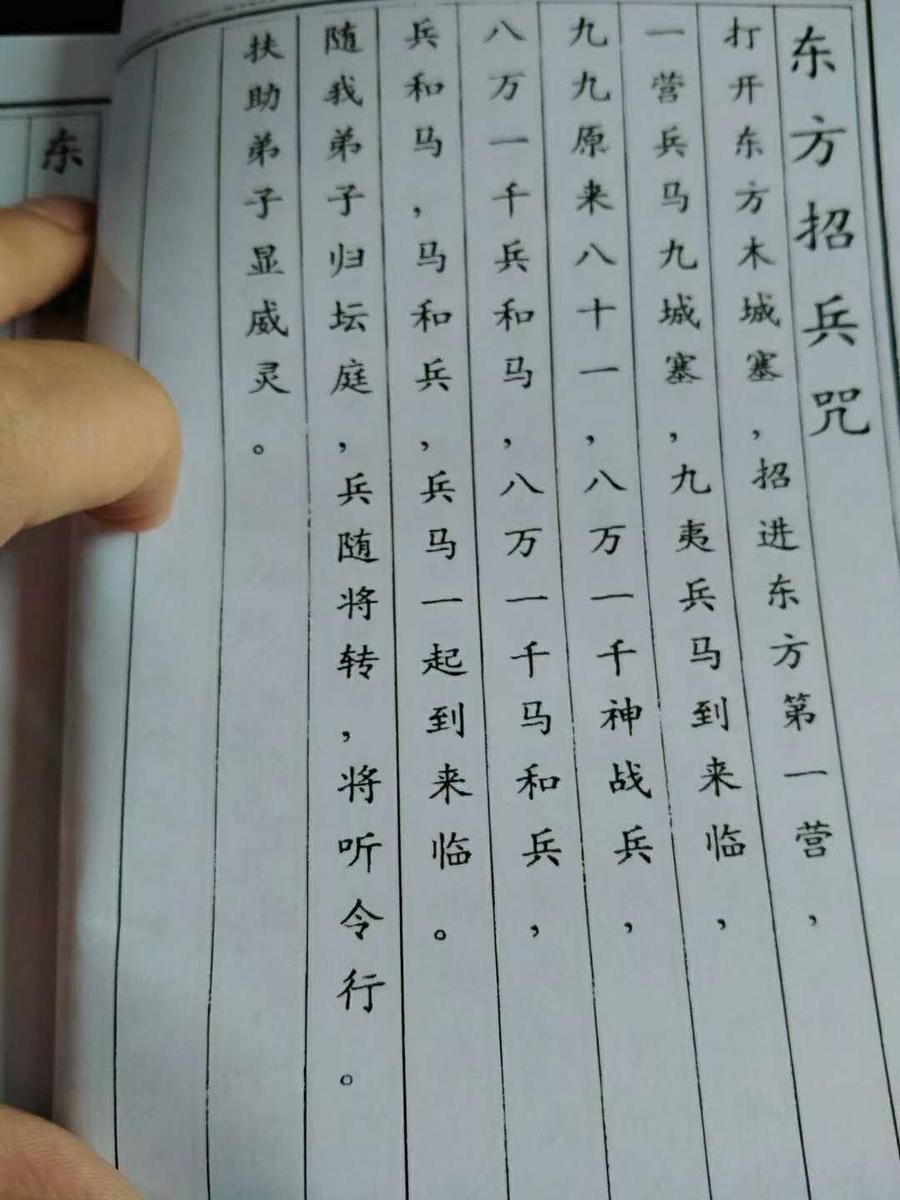 东方招兵咒
打开东方木城塞，招进东方第一营，
一营兵马九城塞，九夷兵马到来临，
九九原来八十一，八万一千神战兵，
八万一千兵和马，八万一千马和兵，
兵和马，马和兵，兵马一起到来临。
随我弟子归坛庭，兵随将转，将听令行。
扶助弟子显威灵。
东